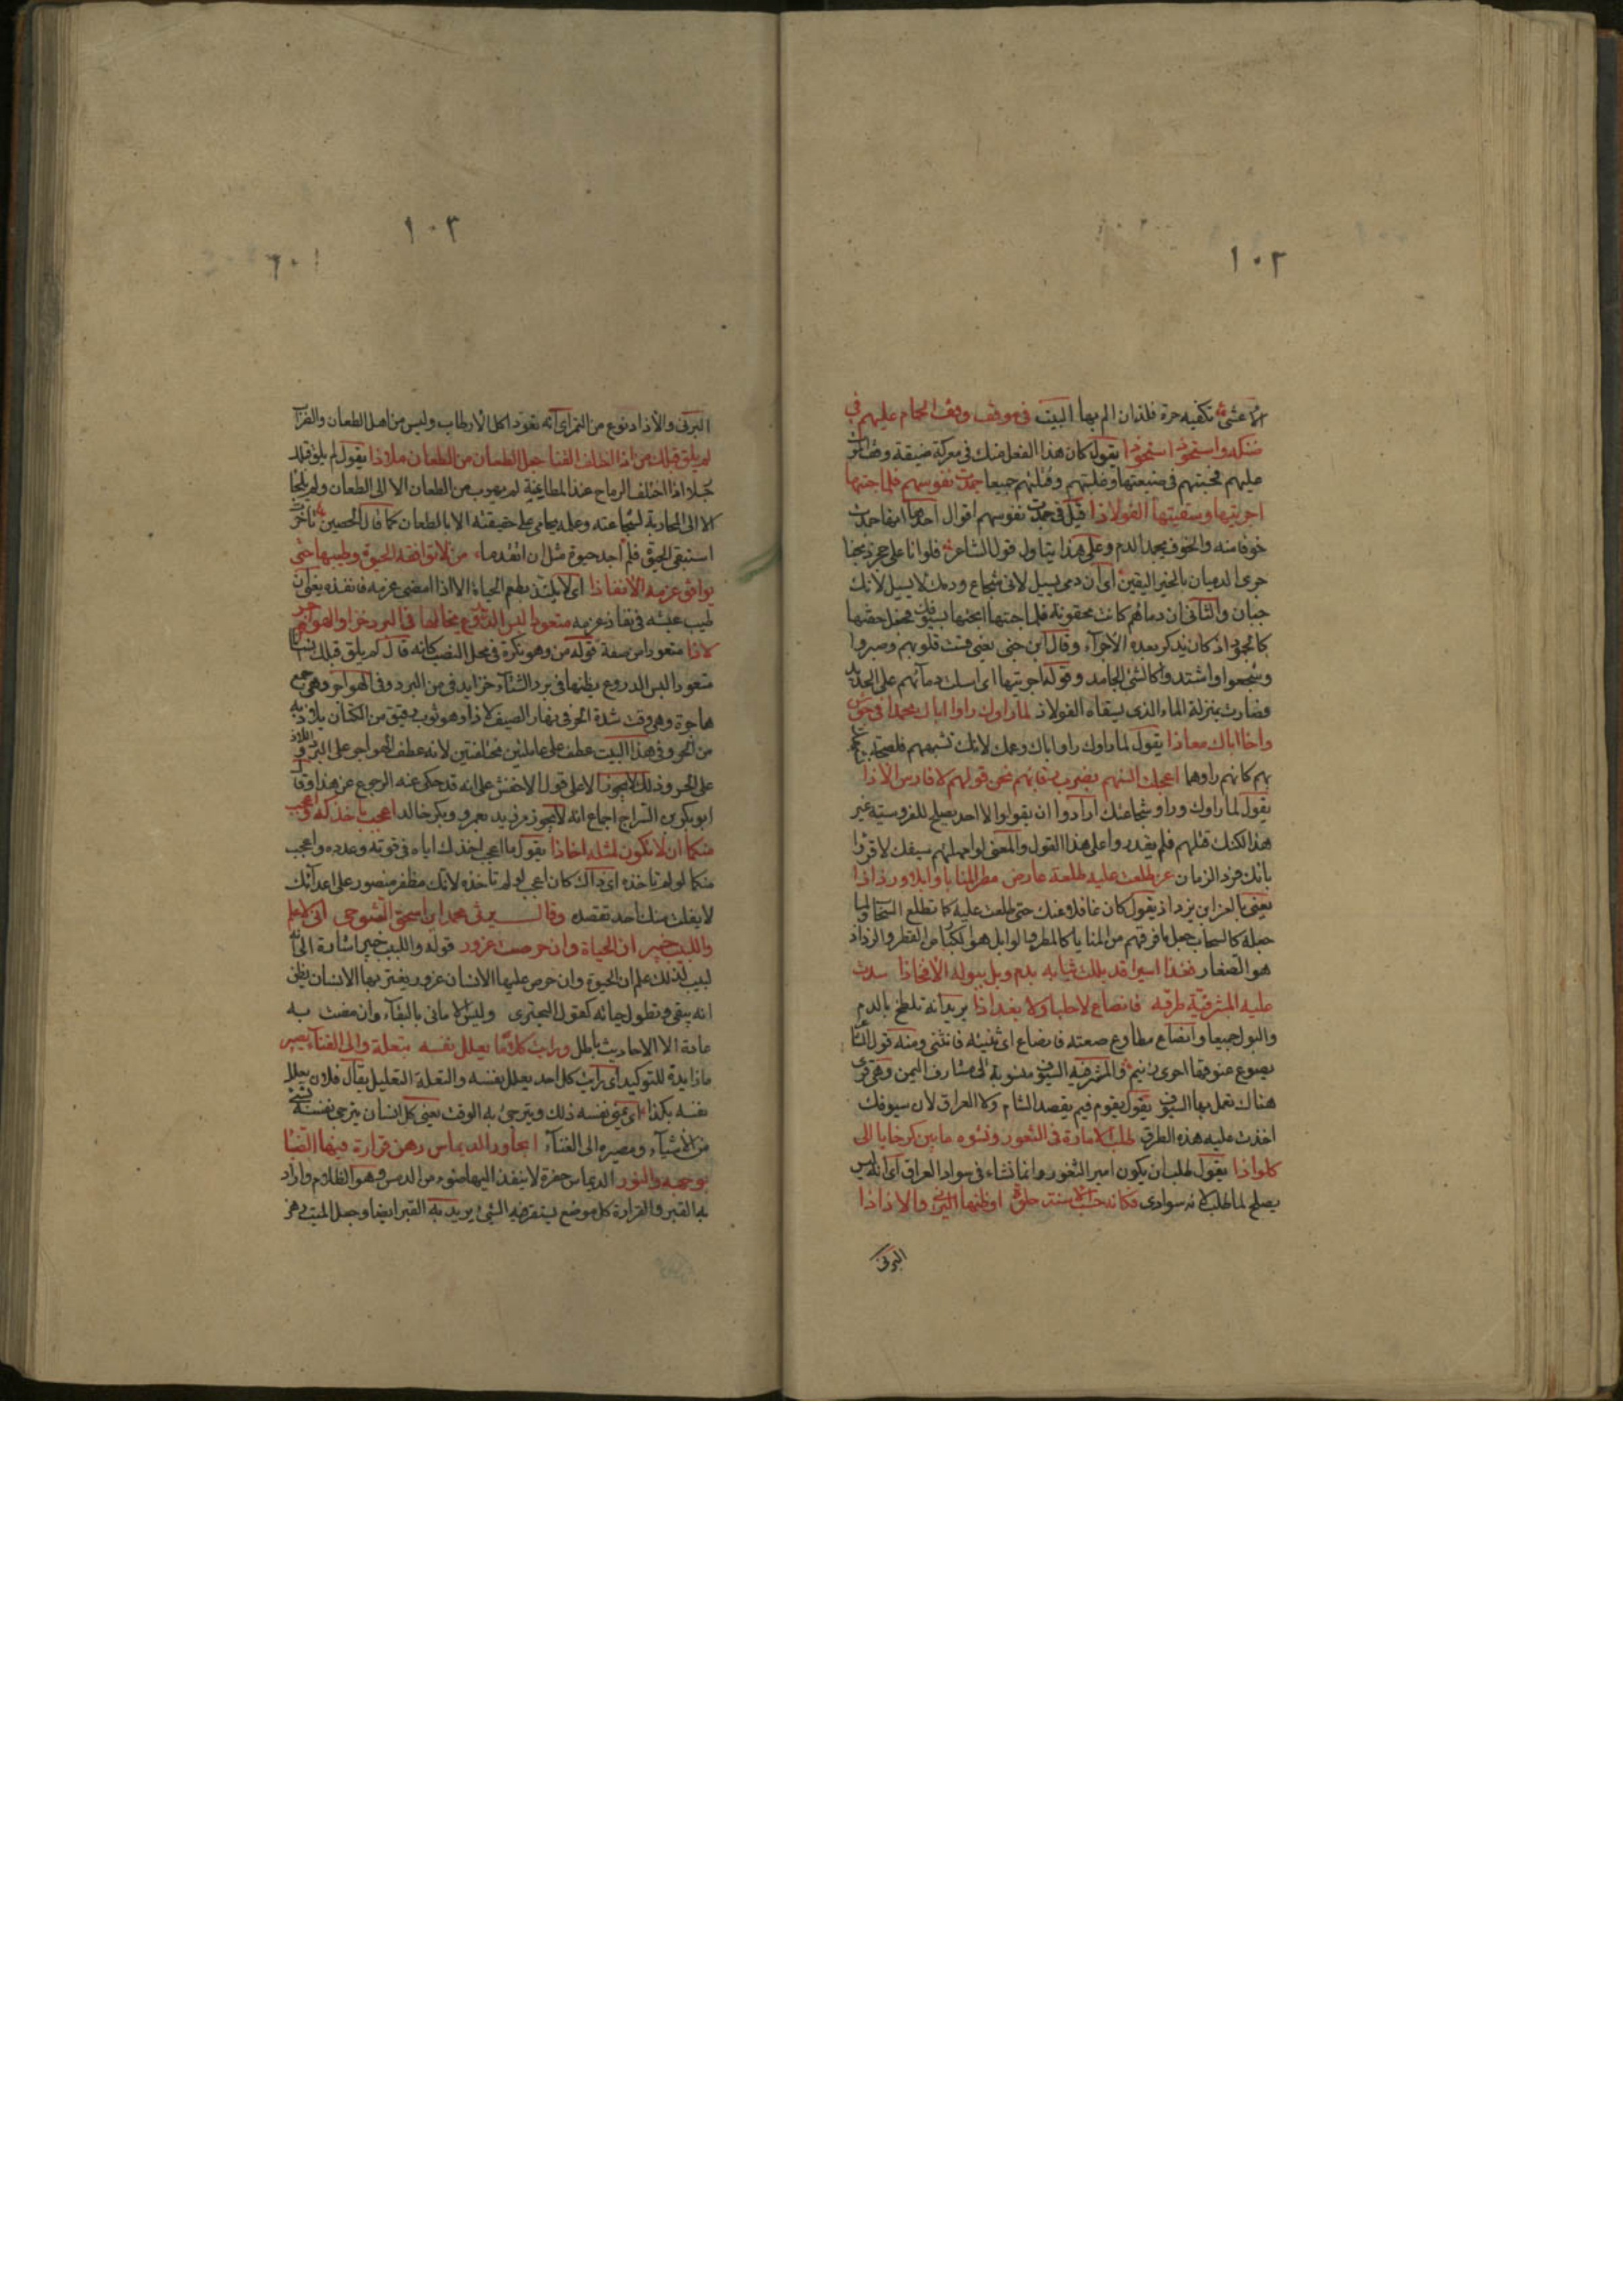 ١٠٢
الاعشى تكفيه حزة فلذان الم بها البيت في موقف وقف الحمام عليهم في
ضنكه واستحوذ استحواذا يقول كان هذا الفعل منك في معركة ضيقة وقف الموت
عليهم فحبستهم في ضيقتها وغلبتهم وقتلتهم جميعا جمدت نفوسهم فلما جئتها
اجريتها وسقيتها الفولاذا قيل في جمدت نفوسهم اقوال احدها انها جمدت
خوفا منه والخوف يجمد الدم وعلى هذا يتاول قول الشاعر فلو انا على حجر ذبحنا
جرى الدميان بالخبر اليقين اى ان دمى يسيل لانى شجاع ودمك لا يسيل لانك
جبان والثانى ان دماءهم كانت محقونة فلما جئتها ابحتها بسيفك فجعل حقنها
كالجمود اذ كان يذكر بعده الاجراء وقال ابن جنى يعنى قست قلوبهم وصبروا
وشجعوا واشتدوا كالشئ الجامد وقوله اجريتها اى اسلت دماءهم على الحديد
فصارت بمنزلة الماء الذى يسقاه الفولاذ لما راوك راوا اباك محمدا في جوشن
واخا ابيك معاذا يقول لما راوك راوا اباك وعمك لانك تشبههم
بهم كانهم راوهما اعجلت السنهم بضرب رقابهم عن قولهم لا فارس الا ذا
يقول لما راوك وراوا شجاعتك ارادوا ان يقولوا لا احد يصلح للفروسية غير
هذا لكنك قتلهم فلم يقدروا على هذا القول والمعنى لو امهلهم سيفك لاقروا
بانك فرد الزمان غر طلعت عليه طلعة عارض مطر المنايا وابلا ورذاذا
يعنى بالغر ابن يزداذ يقول كان غافلا عنك حتى طلعت عليه كما تطلع السحاب ولما
جعله كالسحاب جعل ما فرقهم من المنايا كالمطر والوابل هو الكبار من القطر والرذاذ
هو الصغار فغدا اسيرا قد بللت ثيابه بدم وبل ببوله الافخاذا سدت
عليه المشرفية طرقه فانصاع لا حلبا ولا بغداذا يريد انه تلطخ بالدم
والبول جميعا وانصاع مطاوع صعته فانصاع اى ثنيته فانثنى ومنه قول
يصوع عنوقها احوى زنيم والمشرفية السيوف منسوبة الى مشارف اليمن وهى قرى
هناك تعمل بها السيوف يقول يقوم فيم يقصد الشام ولا العراق لان سيوفك
اخذت عليه هذه الطرق طلب الامارة في الثغور ونشوه ما بين كرخايا الى
كلواذا يقول طلب ان يكون امير الثغور وانما نشاء في سواد العراق اى انه ليس
يصلح لما طلب لانه سوادى فكانه حسب الاسنة حلوة او ظنها البرنى والازاذا
البرنى
١٠٣
البرنى والآزاذ نوع من التمر اى انه تعود اكل الارطاب وليس من اهل الطعان والضراب
لم يلق قبلك من اذا اختلف القنا جعل الطعان من الطعان ملاذا يقول لم يلق قبلك
رجلا اذا اختلف الرماح عند المطاعنة لم يهرب من الطعان الا الى الطعان ولم يلجا
الا الى المحاربة لشجاعته وعلمه بحامى على حقيقته الا بالطعان كما قال الحصين تاخرت
استبقى الحيوة فلم اجد حيوة مثل ان اتقدما من لا توافقه الحيوة وطيبها حتى
يوافق عزمه الانفاذا اى لا يلتذ بطعم الحياة الا اذا امضى عزمه فانفذه يعنى ان
طيب عيشه في نفاذ عزمه متعودا لبس الدروع يخالها في البرد خزا والهواجر
لاذا متعودا من صفة قوله من وهو نكرة في محل النصب كانه قال لم يلق قبلك انسانا
متعودا لبس الدروع يظنها في برد الشتاء خزا يدفى من البرد وفي الهواجر وهى جمع
هاجرة وهى وقت شدة الحر في نهار الصيف لاذا وهو ثوب رقيق من الكتان يلاذ به
من الحر وفي هذا البيت عطف على عاملين مختلفين لانه عطف الهواجر على البرد واللاذ
على الخز وذلك لا يجوز الا على قول الاخفش على انه قد حكى عنه الرجوع عن هذا وقال
ابو بكر بن السراج اجماع انه لا يجوز مر زيد بعمرو وبكر خالد اعجب باخذكه واعجب
منكما ان لا تكون لمثله اخاذا يقول ما اعجب اخذك اياه في قوته وعدده واعجب
منكما لو لم تاخذه اى ذاك كان اعجب لو لم تاخذه لانك مظفر منصور على اعدائك
لا يفلت منك احد تقصده وقال يرثى محمد ابن اسحق التنوخى انى لاعلم
واللبيب خبير ان الحياة وان حرصت غرور قوله واللبيب خبير اشارة الى انه
لبيب لذلك علم ان الحيوة وان حرص عليها الانسان غرور يغتر بها الانسان يظن
انه يبقى وتطول حياته كقول البحترى وليس الامانى بالبقاء وان مضت به
عادة الا الاحاديث باطل ورايت كلا ما يعلل نفسه بتعلة والى الفناء يصير
ما زايدة للتوكيد اى رايت كل احد يعلل نفسه والتعلة التعليل يقال فلان يعلل
نفسه بكذا اى يمنى نفسه ذلك ويترجى به الوقت يعنى كل انسان يترجى نفسه بشئ
من الاشياء ومصيره الى الفناء امجاور الديماس رهن قرارة فيها الضيا
بوجهه والنور الديماس حفرة لا ينفذ اليها ضوء من الدمس وهو الظلام واراد
به القبر والقرارة كل موضع يستقر فيه الشئ يريد به القبر ايضا وجعل الميت رهن